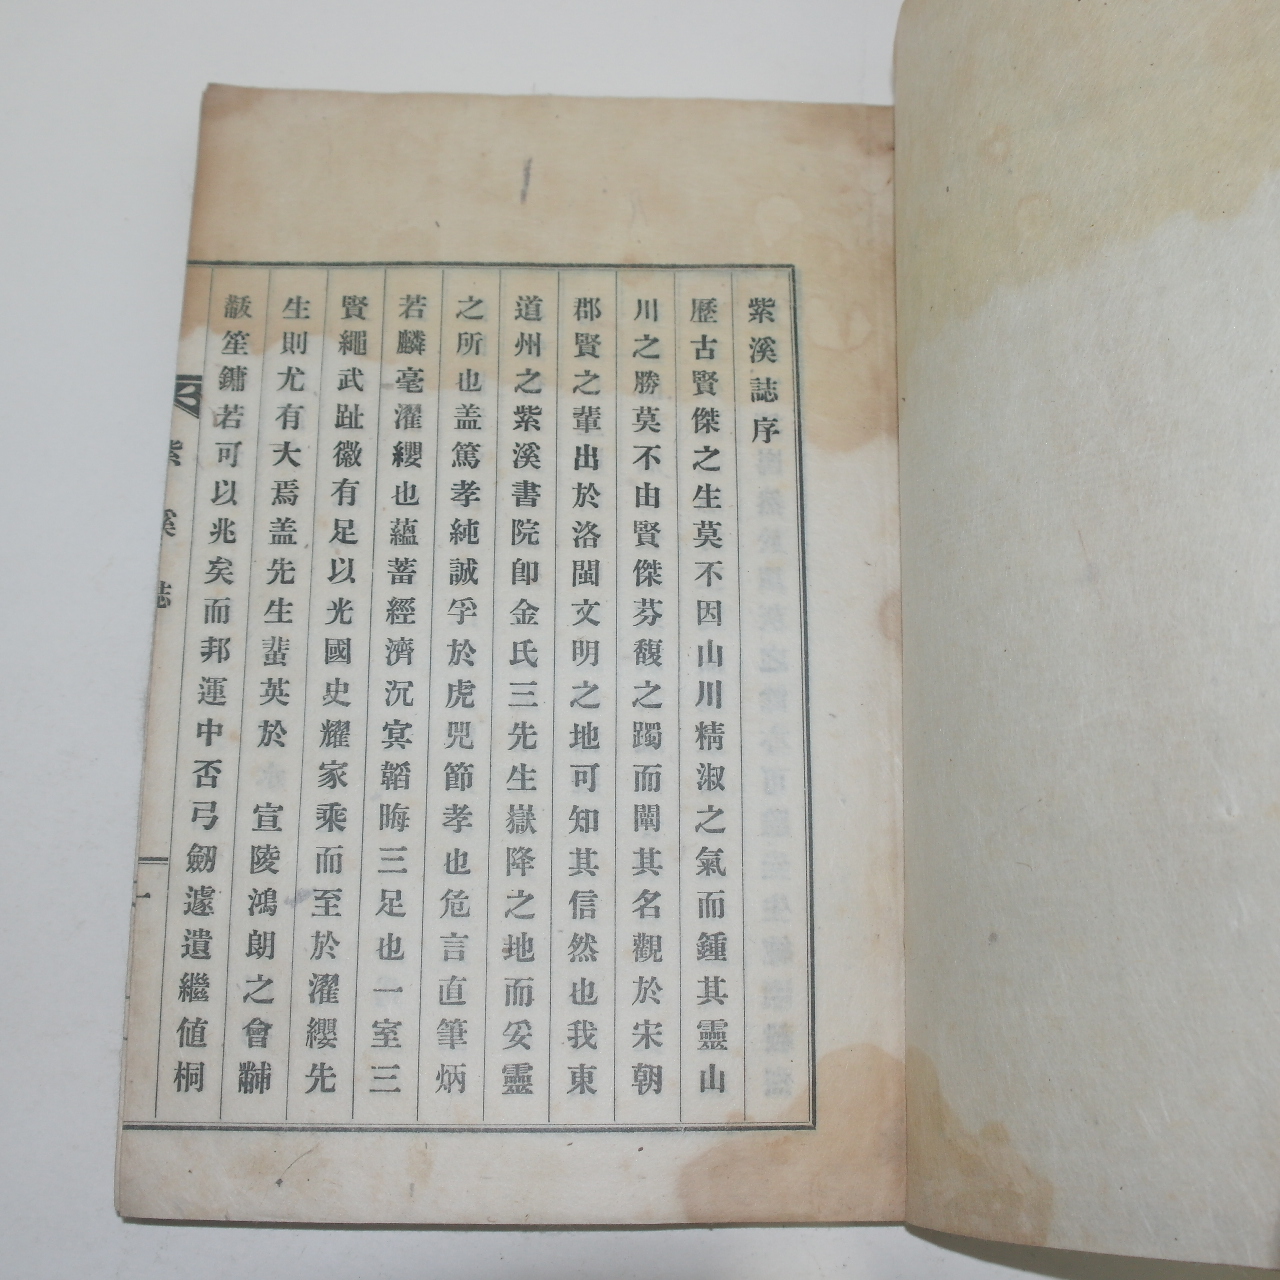 紫溪誌序
歷古賢傑之生莫不因山川精淑之氣而鍾其靈山
川之勝莫不由賢傑芬馥之躅而闡其名觀於宋朝
郡賢之輩出於洛閩文明之地可知其信然也我東
道州之紫溪書院卽金氏三先生嶽降之地而妥靈
之所也盖篤孝純誠孚於虎兕節孝也危言直筆炳
若麟毫濯纓也蘊蓄經濟沉冥韜晦三足也一室三
賢繩武趾徽有足以光國史耀家乘而至於濯纓先
生則尤有大焉盖先生蜚英於 宣陵鴻朗之會黼
黻笙鏞若可以兆矣而邦運中否弓劒遽遺繼値桐
紫溪誌
一